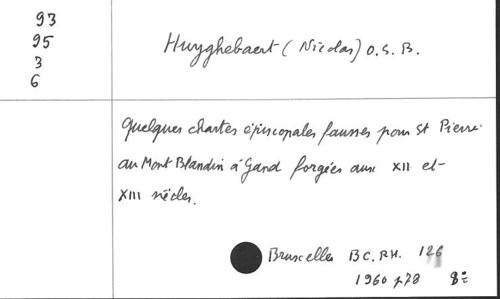 93
95
3
6
Huyghebaert (Nicolas) O.S.B.
Quelques chartes épiscopales fausses pour St Pierre
au Mont Blandin à Gand forgées aux XII et
XIII siècles.
Bruxelles B C. RH. 126
1960 p 78 8=